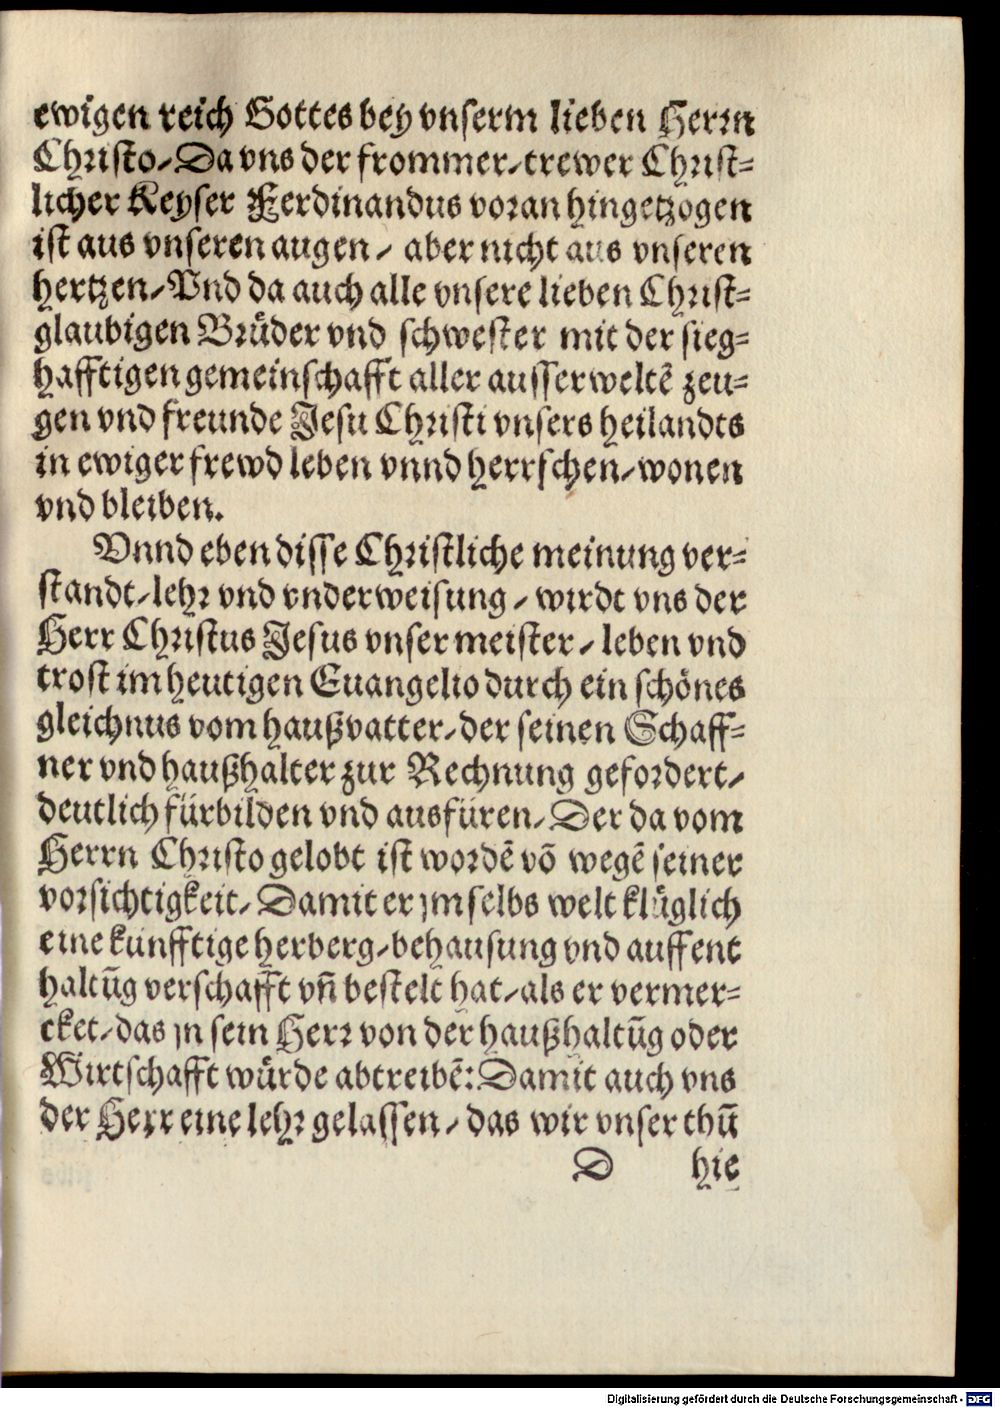 ewigen reich Gottes bey vnserm lieben Herrn
Christo/ Da vns der frommer/ trewer Christ-
licher Keyser Ferdinandus voran hingetzogen
ist aus vnseren augen / aber nicht aus vnseren
hertzen/ Vnd da auch alle vnsere lieben Christ-
glaubigen Brüder vnd schwester mit der sieg-
hafftigen gemeinschafft aller ausserweltē zeu-
gen vnd freunde Jesu Christi vnsers heilandts
in ewiger frewd leben vnnd herrschen/ wonen
vnd bleiben.
Vnnd eben disse Christliche meinung ver-
standt/ lehr vnd vnderweisung / wirdt vns der
Herr Christus Jesus vnser meister / leben vnd
trost im heutigen Euangelio durch ein schönes
gleichnus vom haußvatter/ der seinen Schaff-
ner vnd haußhalter zur Rechnung gefordert/
deutlich fürbilden vnd ausfüren/ Der da vom
Herrn Christo gelobt ist wordē vō wegē seiner
vorsichtigkeit/ Damit er jm selbs welt klüglich
eine kunfftige herberg/ behausung vnd auffent
haltūg verschafft vñ bestelt hat/ als er vermer-
cket/ das jn sein Herr von der haußhaltūg oder
Wirtschafft würde abtreibē: Damit auch vns
der Herr eine lehr gelassen / das wir vnser thū
D hie
Digitalisierung gefördert durch die Deutsche Forschungsgemeinschaft - DFG